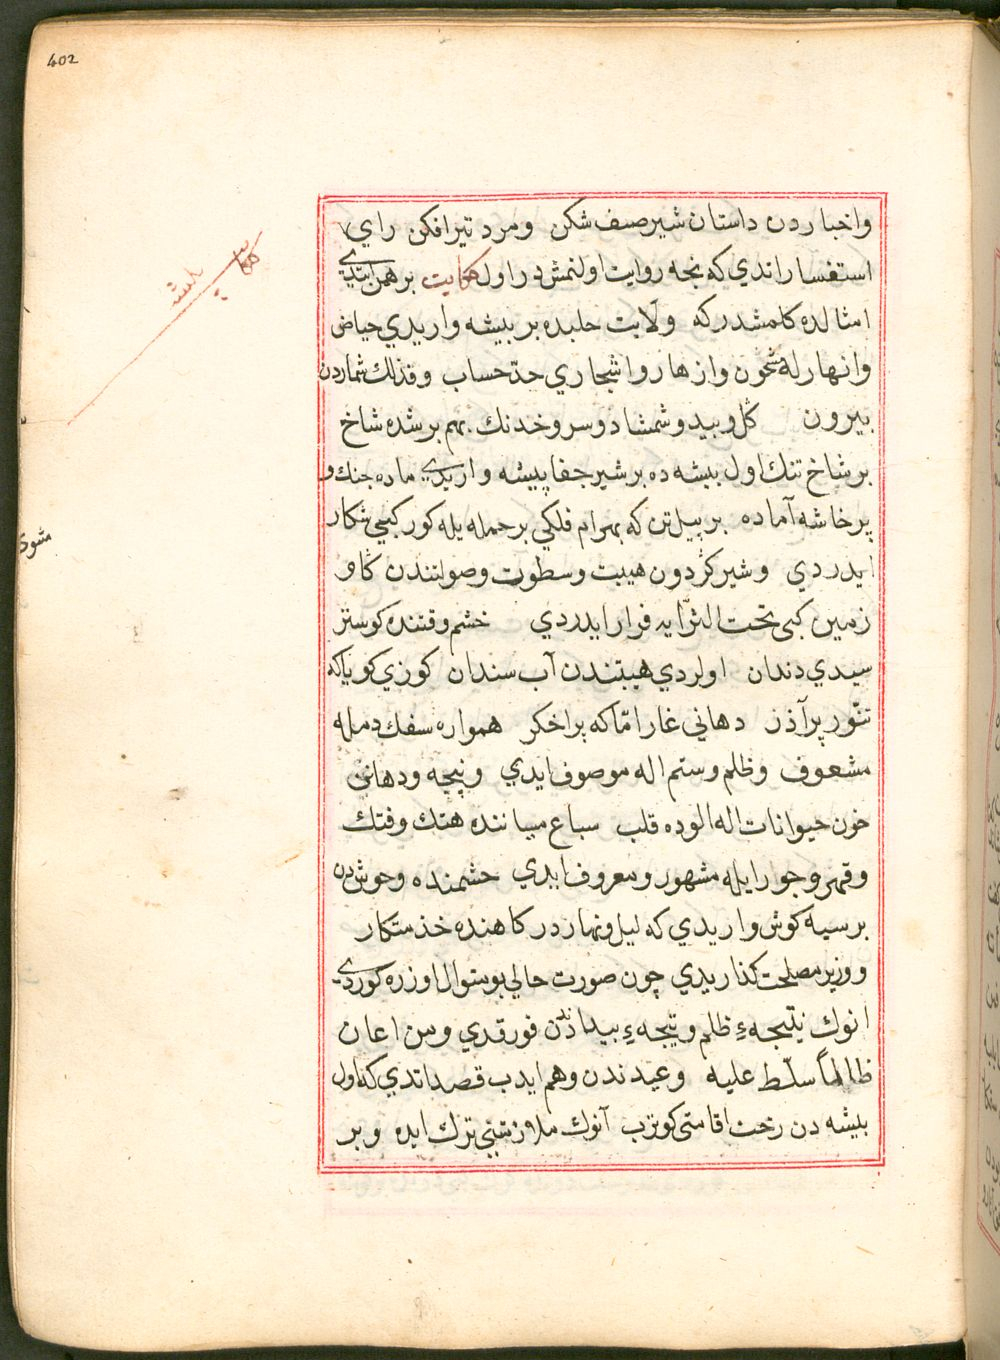 402
واخباردن داستان شیر صف شکن و مرد تیرافکن رای
استفسار اندي که نجه روایت اولنمش در اول حکایت برهمن ایتدی
امثالده کلمشدر که ولایت حلبده بر بیشه واریدي حیاض
وانهارله مشحون وازهار واشجاري حدّ حساب وفذلك شماردن
بیرون کل وبید وشمشاد وسرو خدنك بهم بر شده شاخ
بر شاخ تنك اول بیشه ده بر شیر جفا پیشه واریدی ماده جنك و
پرخاشه آماده بر پیل تن که بهرام فلکي بر حمله یله کور کبي شکار
ایدردي وشیر کردون هیبت وسطوت وصولتندن کاو
زمین کبی تحت الثّرایه فرار ایدردي خشم وقتنده کوستر
سیدي دندان اولردي هیبتندن آب سندان کوزي کویا که
تنّور پر آذر دهاني غار امّا که پر اخکر همواره سفك دمله
مشعوف وظلم وستم اله موصوف ایدي وپنچه ودهانی
خون حیوانات اله الوده قلب سباع میاننده هتك وفتك
وقهر وجور ایله مشهور ومعروف ایدي حشمنده وحوش دن
بر سیه کوش واریدي که لیل ونهار درکاهنده خذمتکار
ووزیر مصلحت کذار یدي چون صورت حالي بو منوال اوزره کوردی
انوك نتیجهٔ ظلم ونتیجهٔ بیداذدن قورقدي ومن اعان
ظالماً سلّط علیه وعیدندن وهم ایدب قصد اتدي که اول
بیشه دن رخت اقامتی کوترب آنوك ملازمتنی ترك ایده وبر
حکایت
بیشه
مثنوی